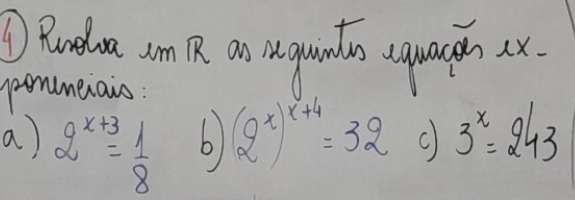 4) Resolva em ℝ as seguintes equações ex-
ponenciais:
a) 2^(x+3) = 1/8 b) (2^x)^(x+4) = 32 c) 3^x = 243